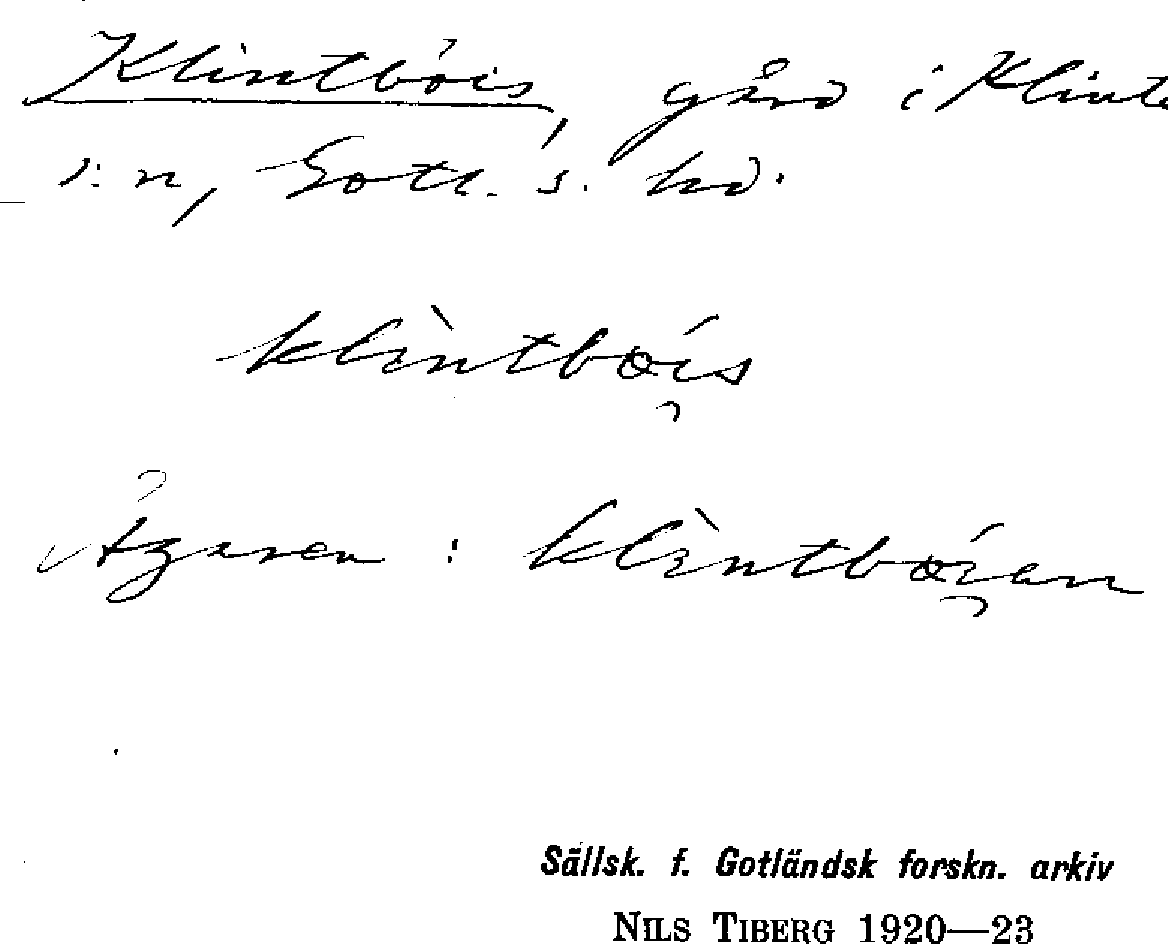 Klintbóis, gård i Klinte
s:n, Gotl. s. hd.
klìntbóis
Ägaren : klìntbóian
Sällsk. f. Gotländsk forskn. arkiv
NILS TIBERG 1920—23